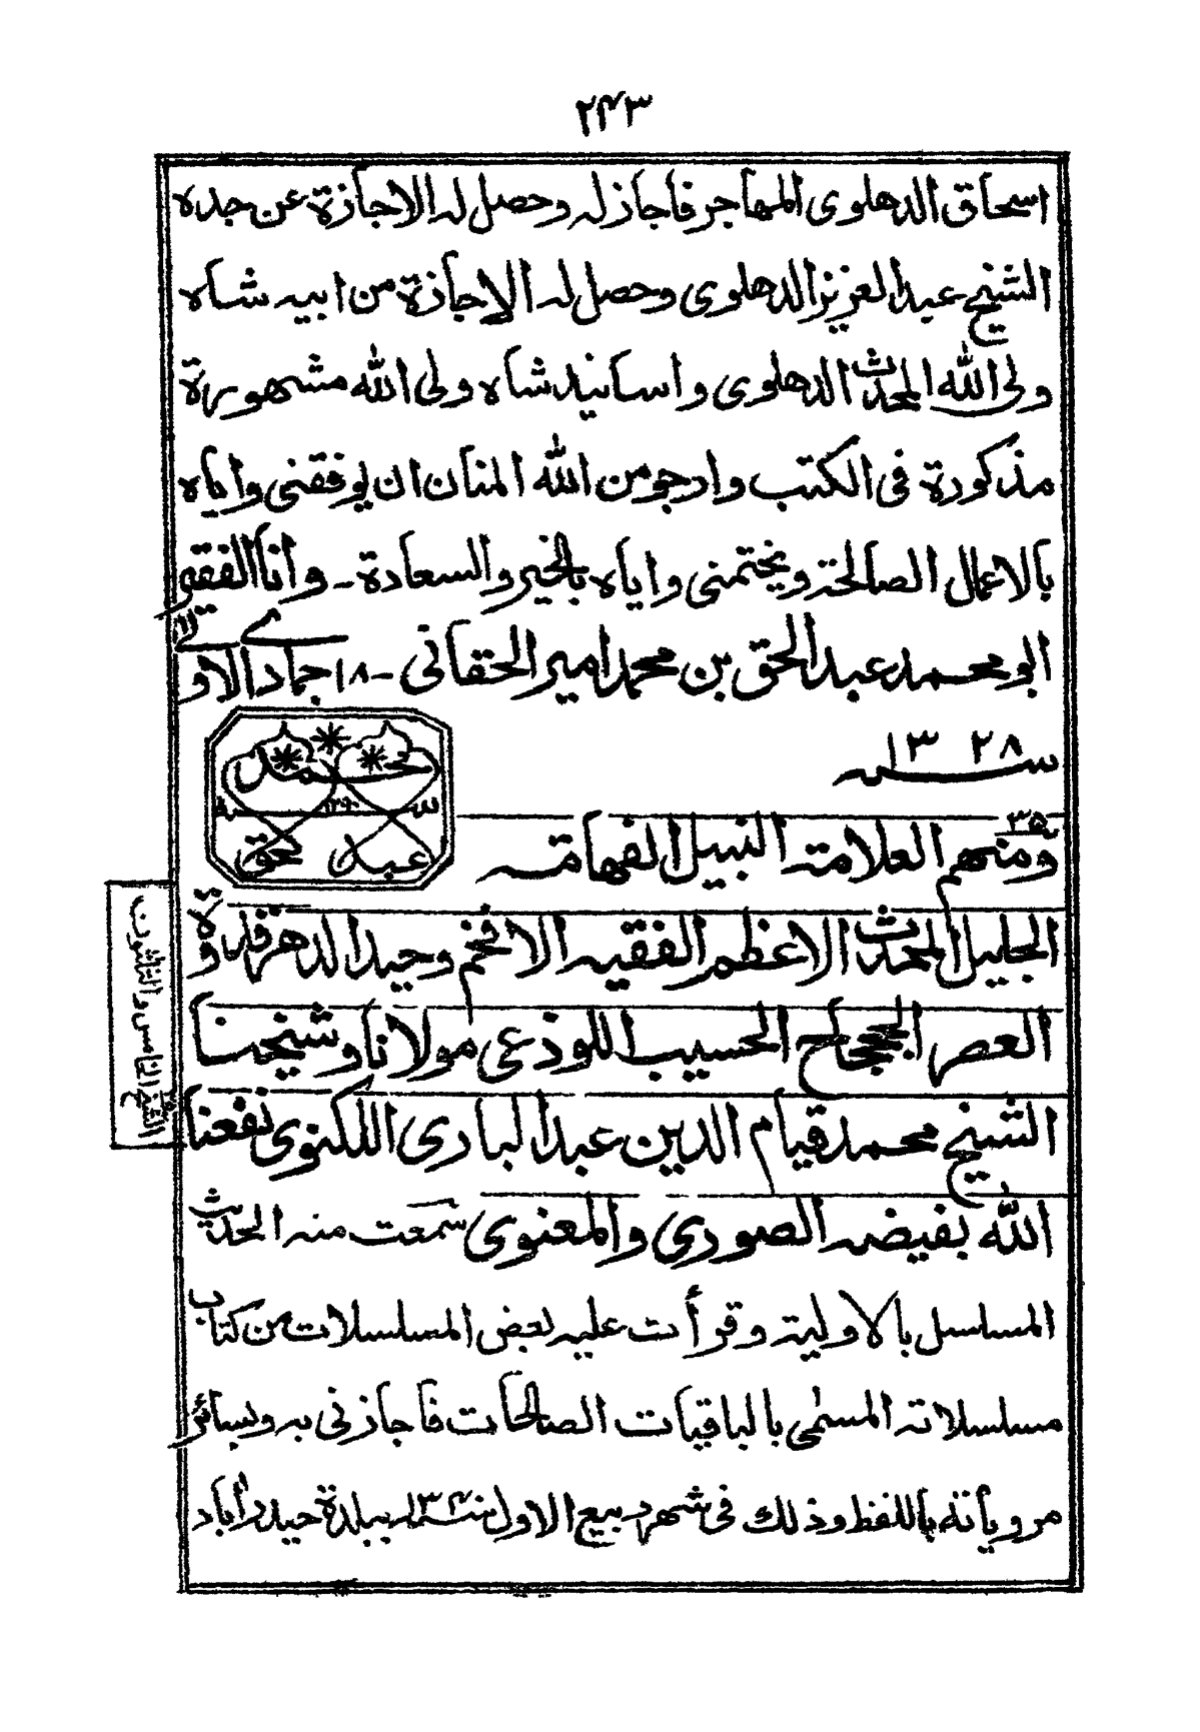 ۲۴۳
اسحاق الدهلوى المهاجر فاجاز له وحصل له الاجازة عن جده
الشيخ عبد العزيز الدهلوى وحصل له الاجازة من ابيه شاه
ولى الله المحدث الدهلوى واسانيد شاه ولى الله مشهورة
مذكورة فى الكتب وارجو من الله المنان ان يوفقنى واياه
بالاعمال الصالحة ويختمنى واياه بالخير والسعادة - وانا الفقير
ابو محمد عبد الحق بن محمد امير الحقانى - ١٨ جمادى الاولى
سنه ١٣٢٨
محمد
عبد الحق
۳۵
ومنهم العلامة النبيل الفهامة
الجليل المحدث الاعظم الفقيه الافخم وحيد الدهر قدوة
العصر الججاح الحسيب اللوذعى مولانا وشيخنا
الشيخ محمد قيام الدين عبد البارى اللكنوى نفعنا
الله بفيضه الصورى والمعنوى سمعت منه الحديث
المسلسل بالاولية وقرأت عليه بعض المسلسلات من كتاب
مسلسلاته المسمى بالباقيات الصالحات فاجازنى به وبسائر
مروياته باللفظ وذلك فى شهر ربيع الاول سنه ببلدة حيدراباد
الشيخ الخامس والثلثون